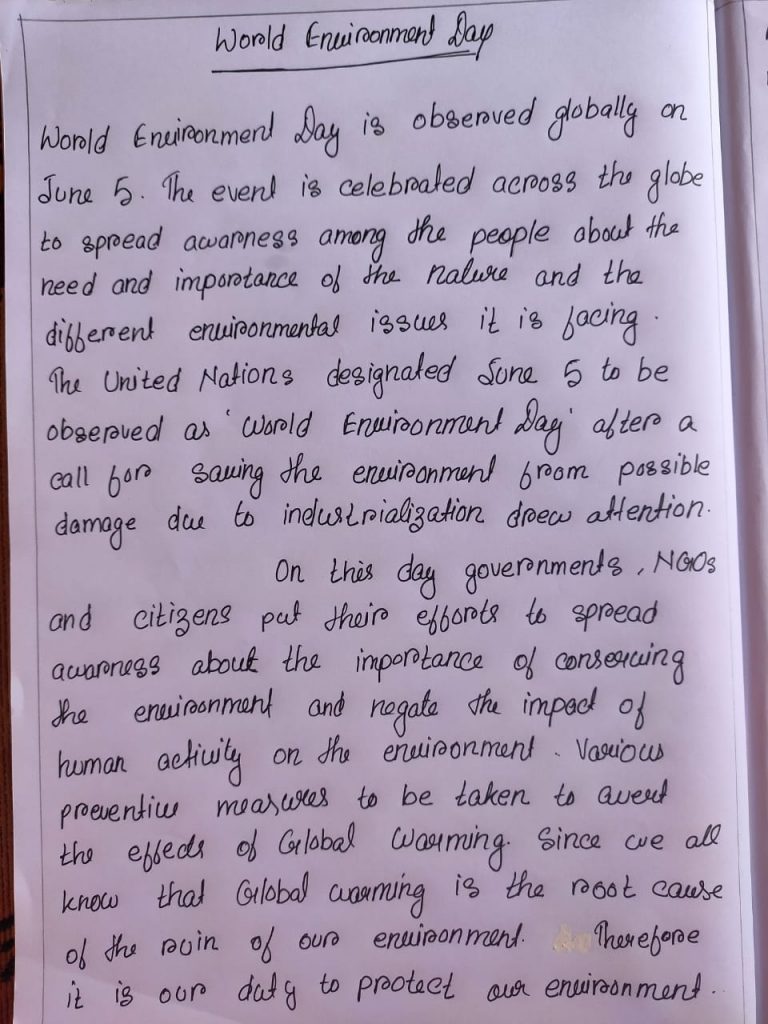 World Environment Day
World Environment Day is observed globally on
June 5. The event is celebrated across the globe
to spread awarness among the people about the
need and importance of the nature and the
different environmental issues it is facing.
The United Nations designated June 5 to be
observed as 'World Environment Day' after a
call for saving the environment from possible
damage due to industrialization drew attention.
On this day governments, NGOs
and citizens put their efforts to spread
awarness about the importance of conserving
the environment and negate the impact of
human activity on the environment. Various
preventive measures to be taken to avert
the effects of Global Warming. Since we all
know that Global warming is the root cause
of the ruin of our environment. Therefore
it is our duty to protect our environment.